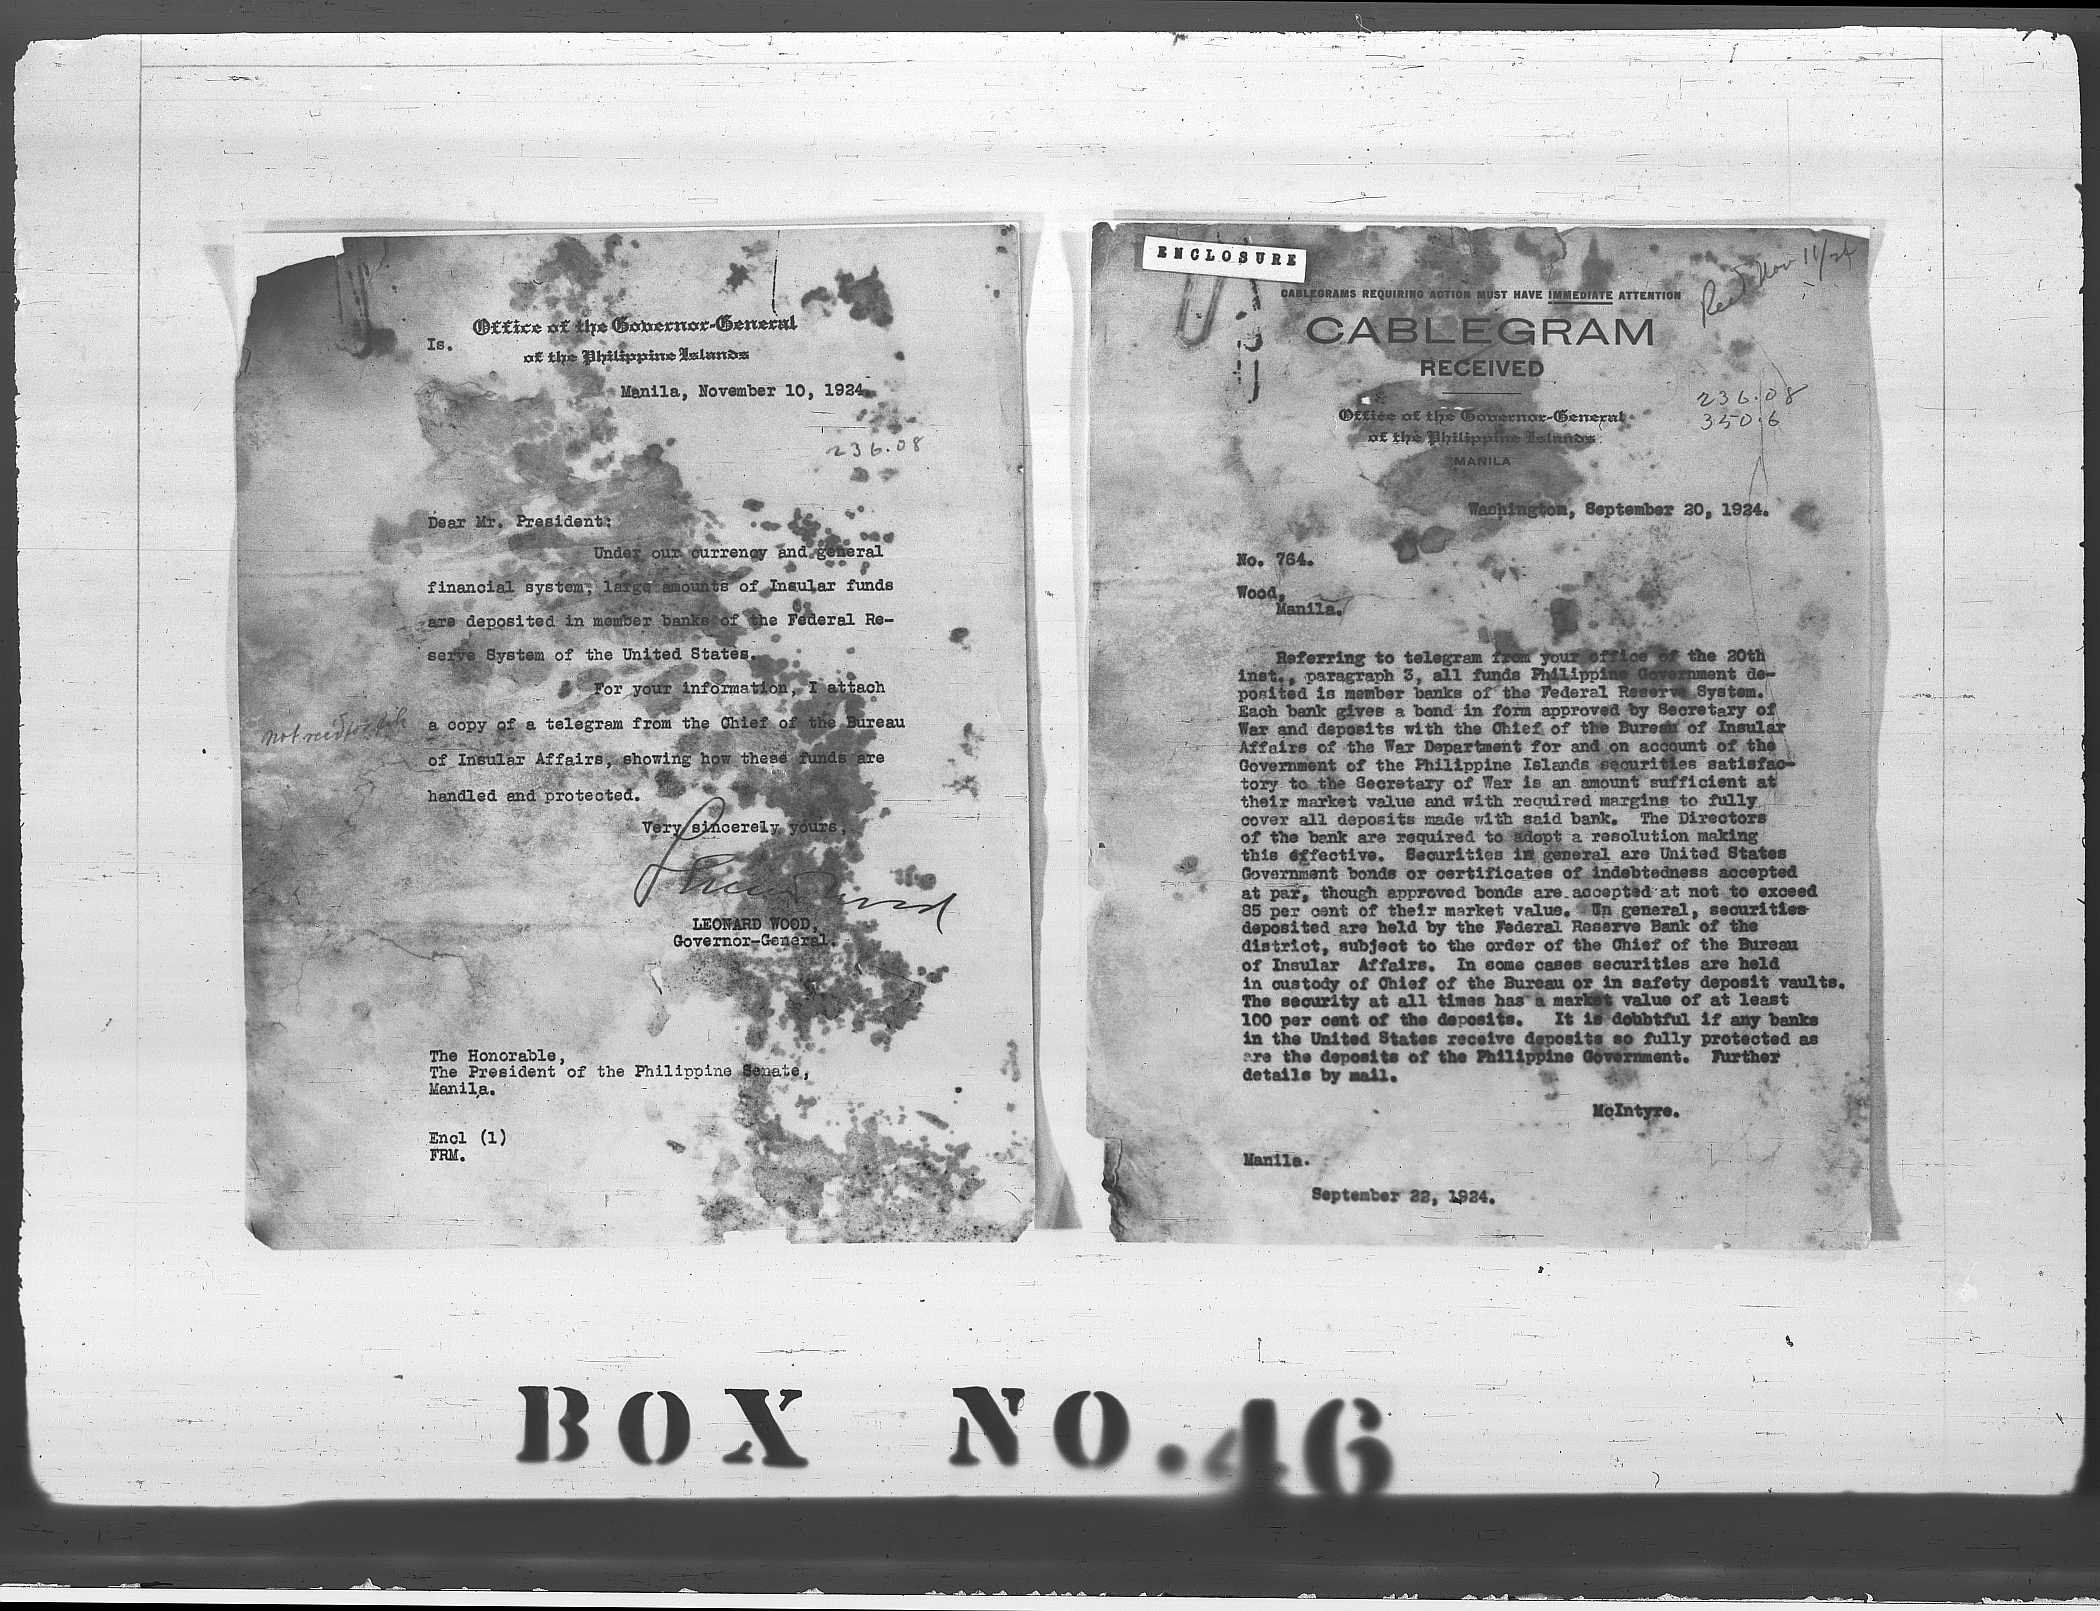 Office of the Governor-General
Is.
of the Philippine Islands
Manila, November 10, 1924.
236.08
Dear Mr. President:
Under our currency and general
financial system, large amounts of Insular funds
are deposited in member banks of the Federal Re-
serve System of the United States.
For your information, I attach
a copy of a telegram from the Chief of the Bureau
of Insular Affairs, showing how these funds are
handled and protected.
Very sincerely yours,
Leonard Wood
LEONARD WOOD,
Governor-General.
The Honorable,
The President of the Philippine Senate,
Manila.
Encl (1)
FRM.
ENCLOSURE
Rec'd Nov 11/24
CABLEGRAMS REQUIRING ACTION MUST HAVE IMMEDIATE ATTENTION
CABLEGRAM
RECEIVED
236.08
350.6
Office of the Governor-General
of the Philippine Islands
MANILA
Washington, September 20, 1924.
No. 764.
Wood,
Manila.
Referring to telegram from your office of the 20th
inst., paragraph 3, all funds Philippine Government de-
posited is member banks of the Federal Reserve System.
Each bank gives a bond in form approved by Secretary of
War and deposits with the Chief of the Bureau of Insular
Affairs of the War Department for and on account of the
Government of the Philippine Islands securities satisfac-
tory to the Secretary of War is an amount sufficient at
their market value and with required margins to fully
cover all deposits made with said bank. The Directors
of the bank are required to adopt a resolution making
this effective. Securities in general are United States
Government bonds or certificates of indebtedness accepted
at par, though approved bonds are accepted at not to exceed
85 per cent of their market value. Un general, securities
deposited are held by the Federal Reserve Bank of the
district, subject to the order of the Chief of the Bureau
of Insular Affairs. In some cases securities are held
in custody of Chief of the Bureau or in safety deposit vaults.
The security at all times has a market value of at least
100 per cent of the deposits. It is dobbtful if any banks
in the United States receive deposits so fully protected as
are the deposits of the Philippine Government. Further
details by mail.
McIntyre.
Manila.
September 22, 1924.
BOX NO. 46